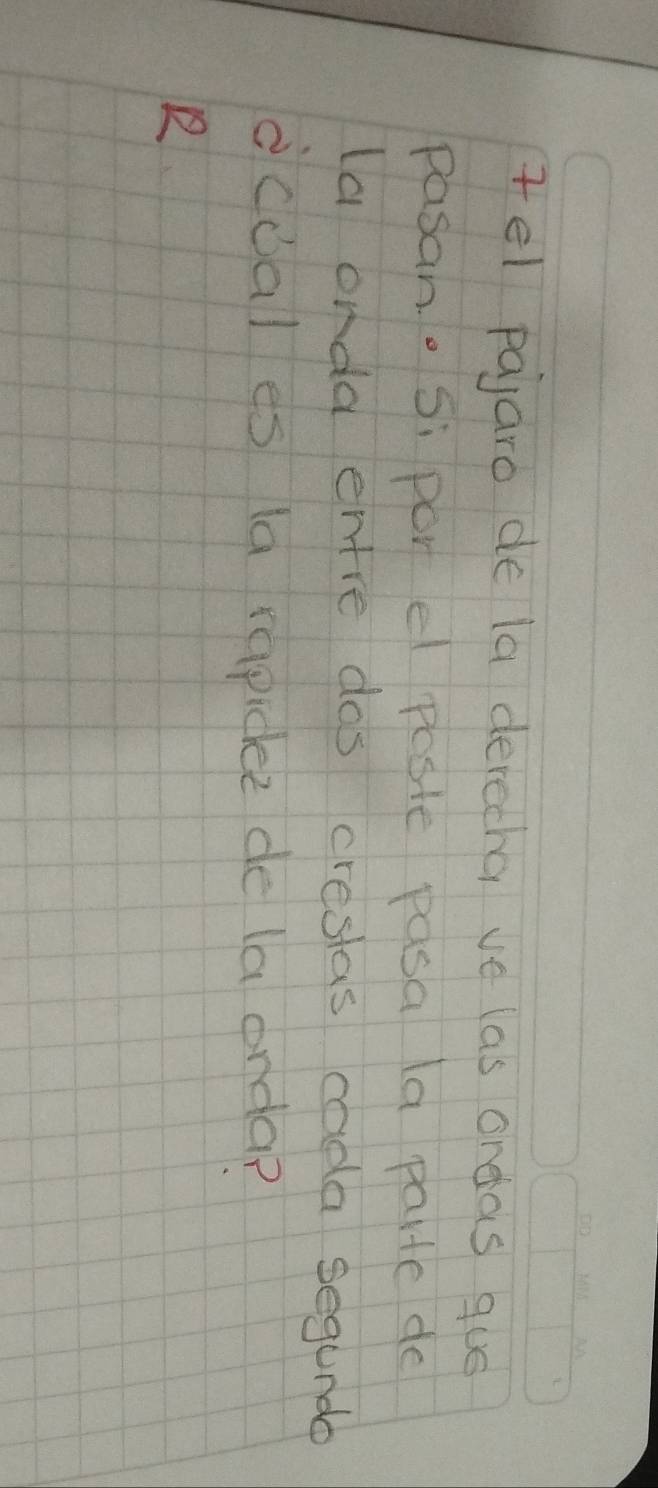 + el pájaro de la derecha ve las ondas que
pasan. Si por el poste pasa la parte de
la onda entre dos crestas cada segundo
¿Cúal es la rapidez de la onda?
R.